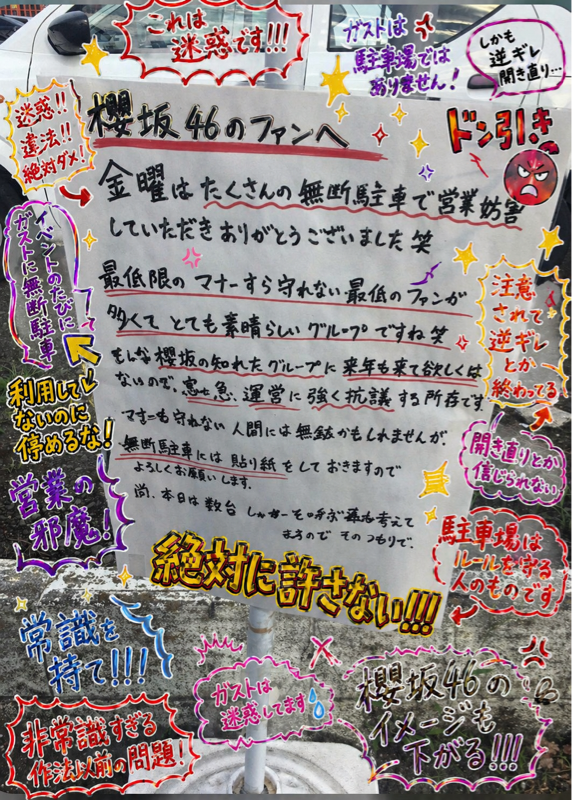 これは
迷惑です!!!
ガストは
駐車場では
ありません!
しかも
逆ギレ
開き直り…
迷惑!!
違法!!
絶対ダメ!
ドン引き
櫻坂46のファンへ
金曜はたくさんの無断駐車で営業妨害
していただきありがとうございました笑
最低限のマナーすら守れない最低のファンが
多くて とても素晴らしいグループですね笑
櫻坂の知れたグループに来年も来て欲しくは
ないので、急 運営に強く抗議する所存です
マナーも守れない人間には無かもしれませんが、
無断駐車には貼り紙をしておきますので
よろしくお願いします。
尚、本日は数台 考えて
そのつもりで。
絶対に許さない!!!
イベントのたびに
ガストに無断駐車
利用して
ないのに
停めるな!
営業の
邪魔!
注意
されて
逆ギレ
とか
終わってる
開き直りとか
信じられない
駐車場は
ルールを守る
人のものです
常識を
持て!!!
ガストは
迷惑してます
櫻坂46の
イメージも
下がる!!!
非常識すぎる
作法以前の問題!